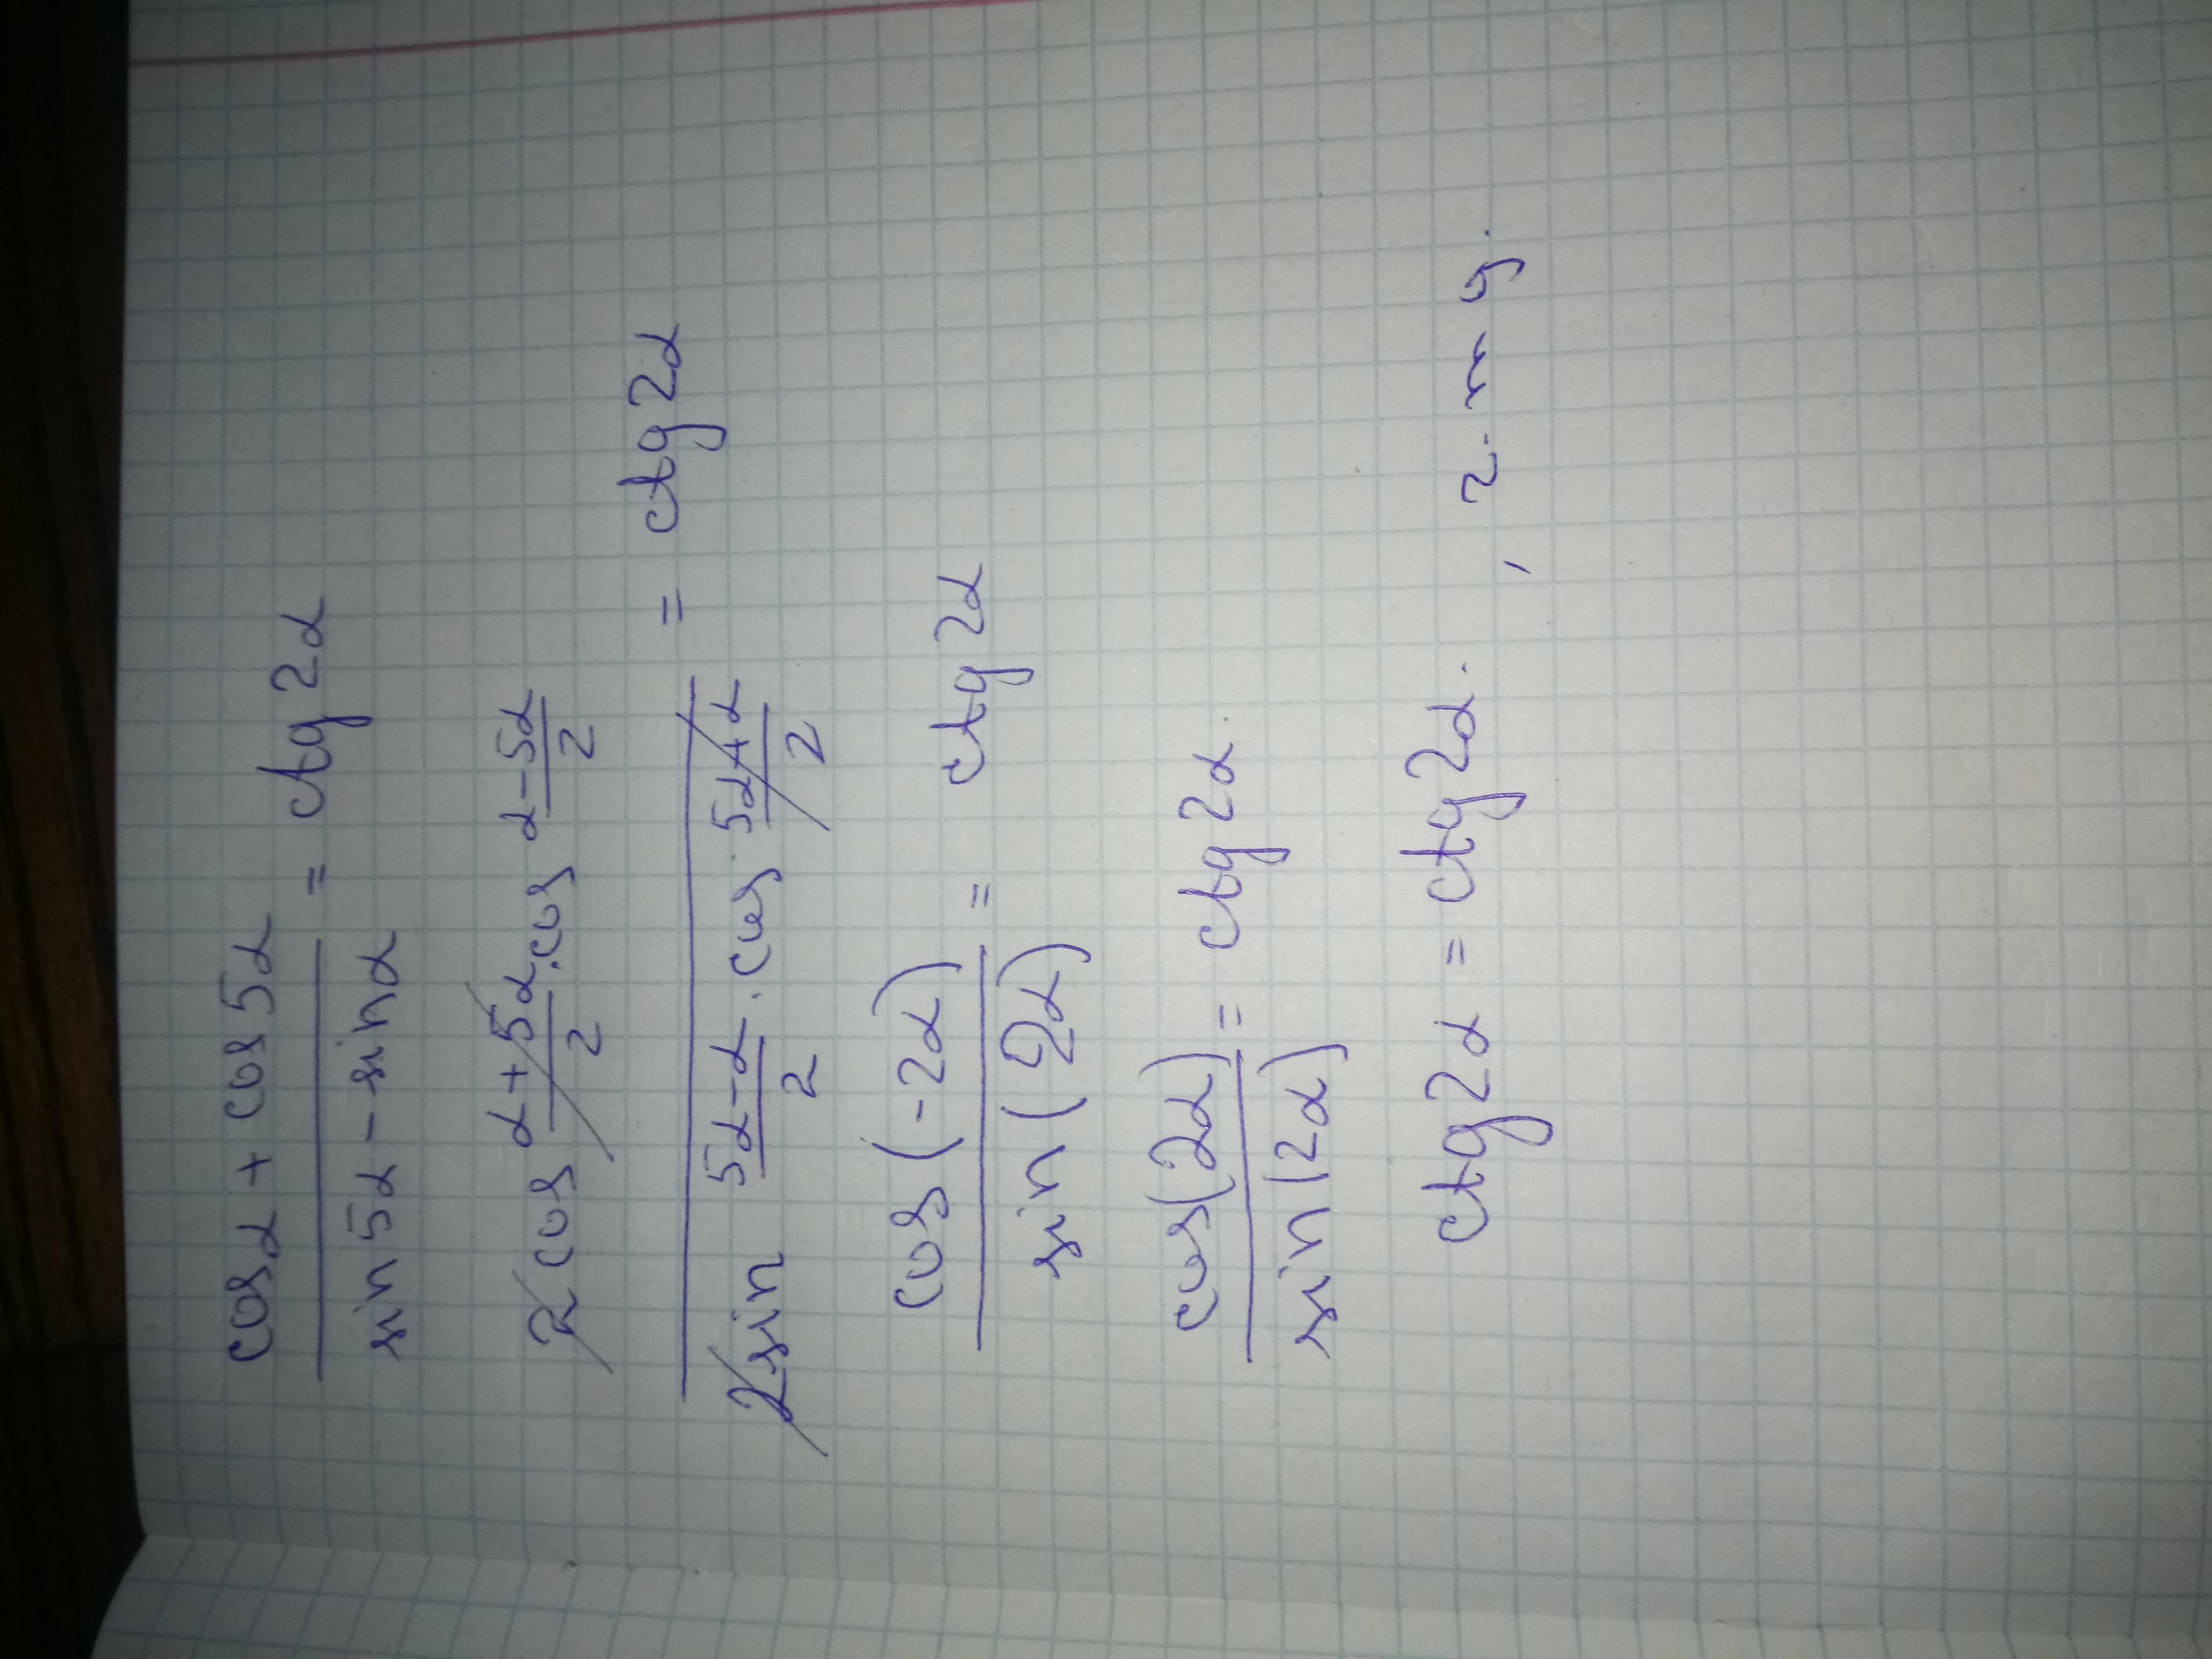 cosα + cos5α / sin5α - sinα = ctg2α
2cos α+5α/2 · cos α-5α/2 / 2sin 5α-α/2 · cos 5α+α/2 = ctg2α
cos(-2α) / sin(2α) = ctg2α
cos(2α) / sin(2α) = ctg2α.
ctg2α = ctg2α. , г. т g.